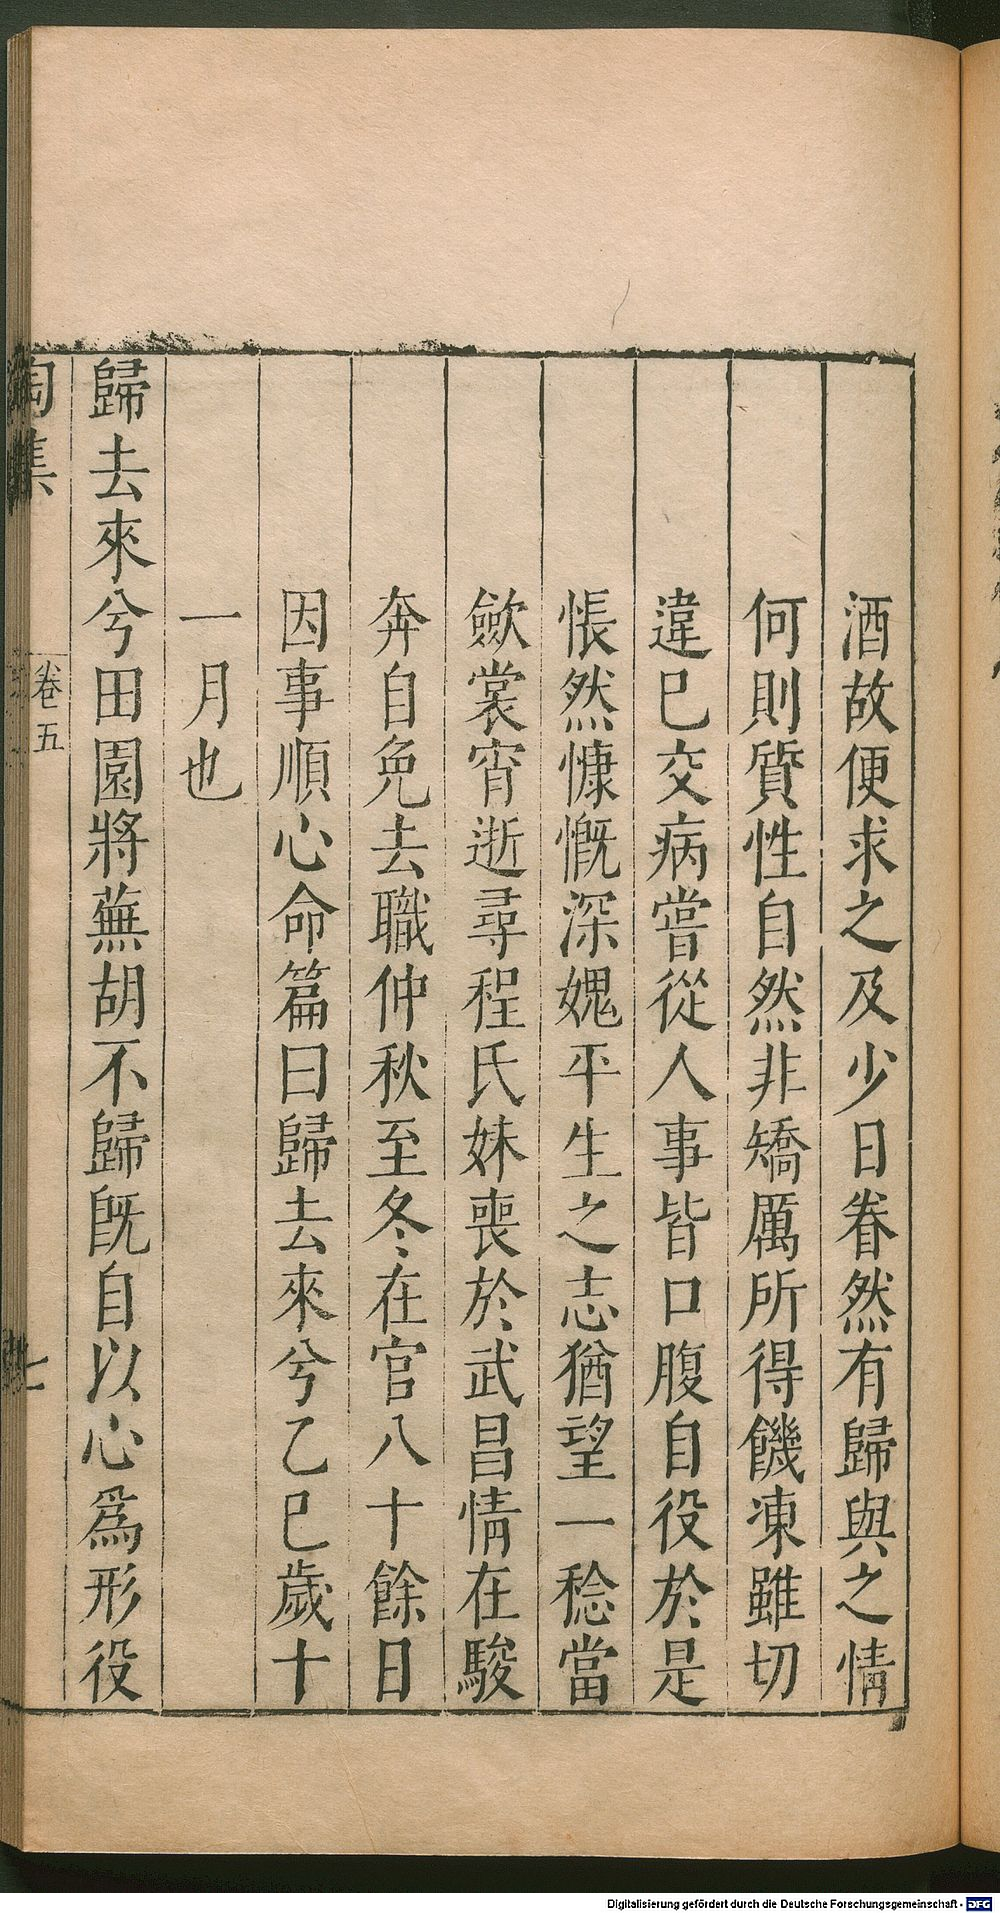 酒故便求之及少日眷然有歸與之情
何則質性自然非矯厲所得饑凍雖切
違巳交病嘗從人事皆口腹自役於是
悵然慷慨深媿平生之志猶望一稔當
歛裳宵逝尋程氏妹喪於武昌情在駿
奔自免去職仲秋至冬在官八十餘日
因事順心命篇曰歸去來兮乙巳歲十
一月也
歸去來兮田園將蕪胡不歸旣自以心爲形役
陶集
卷五
七
Digitalisierung gefördert durch die Deutsche Forschungsgemeinschaft - DFG